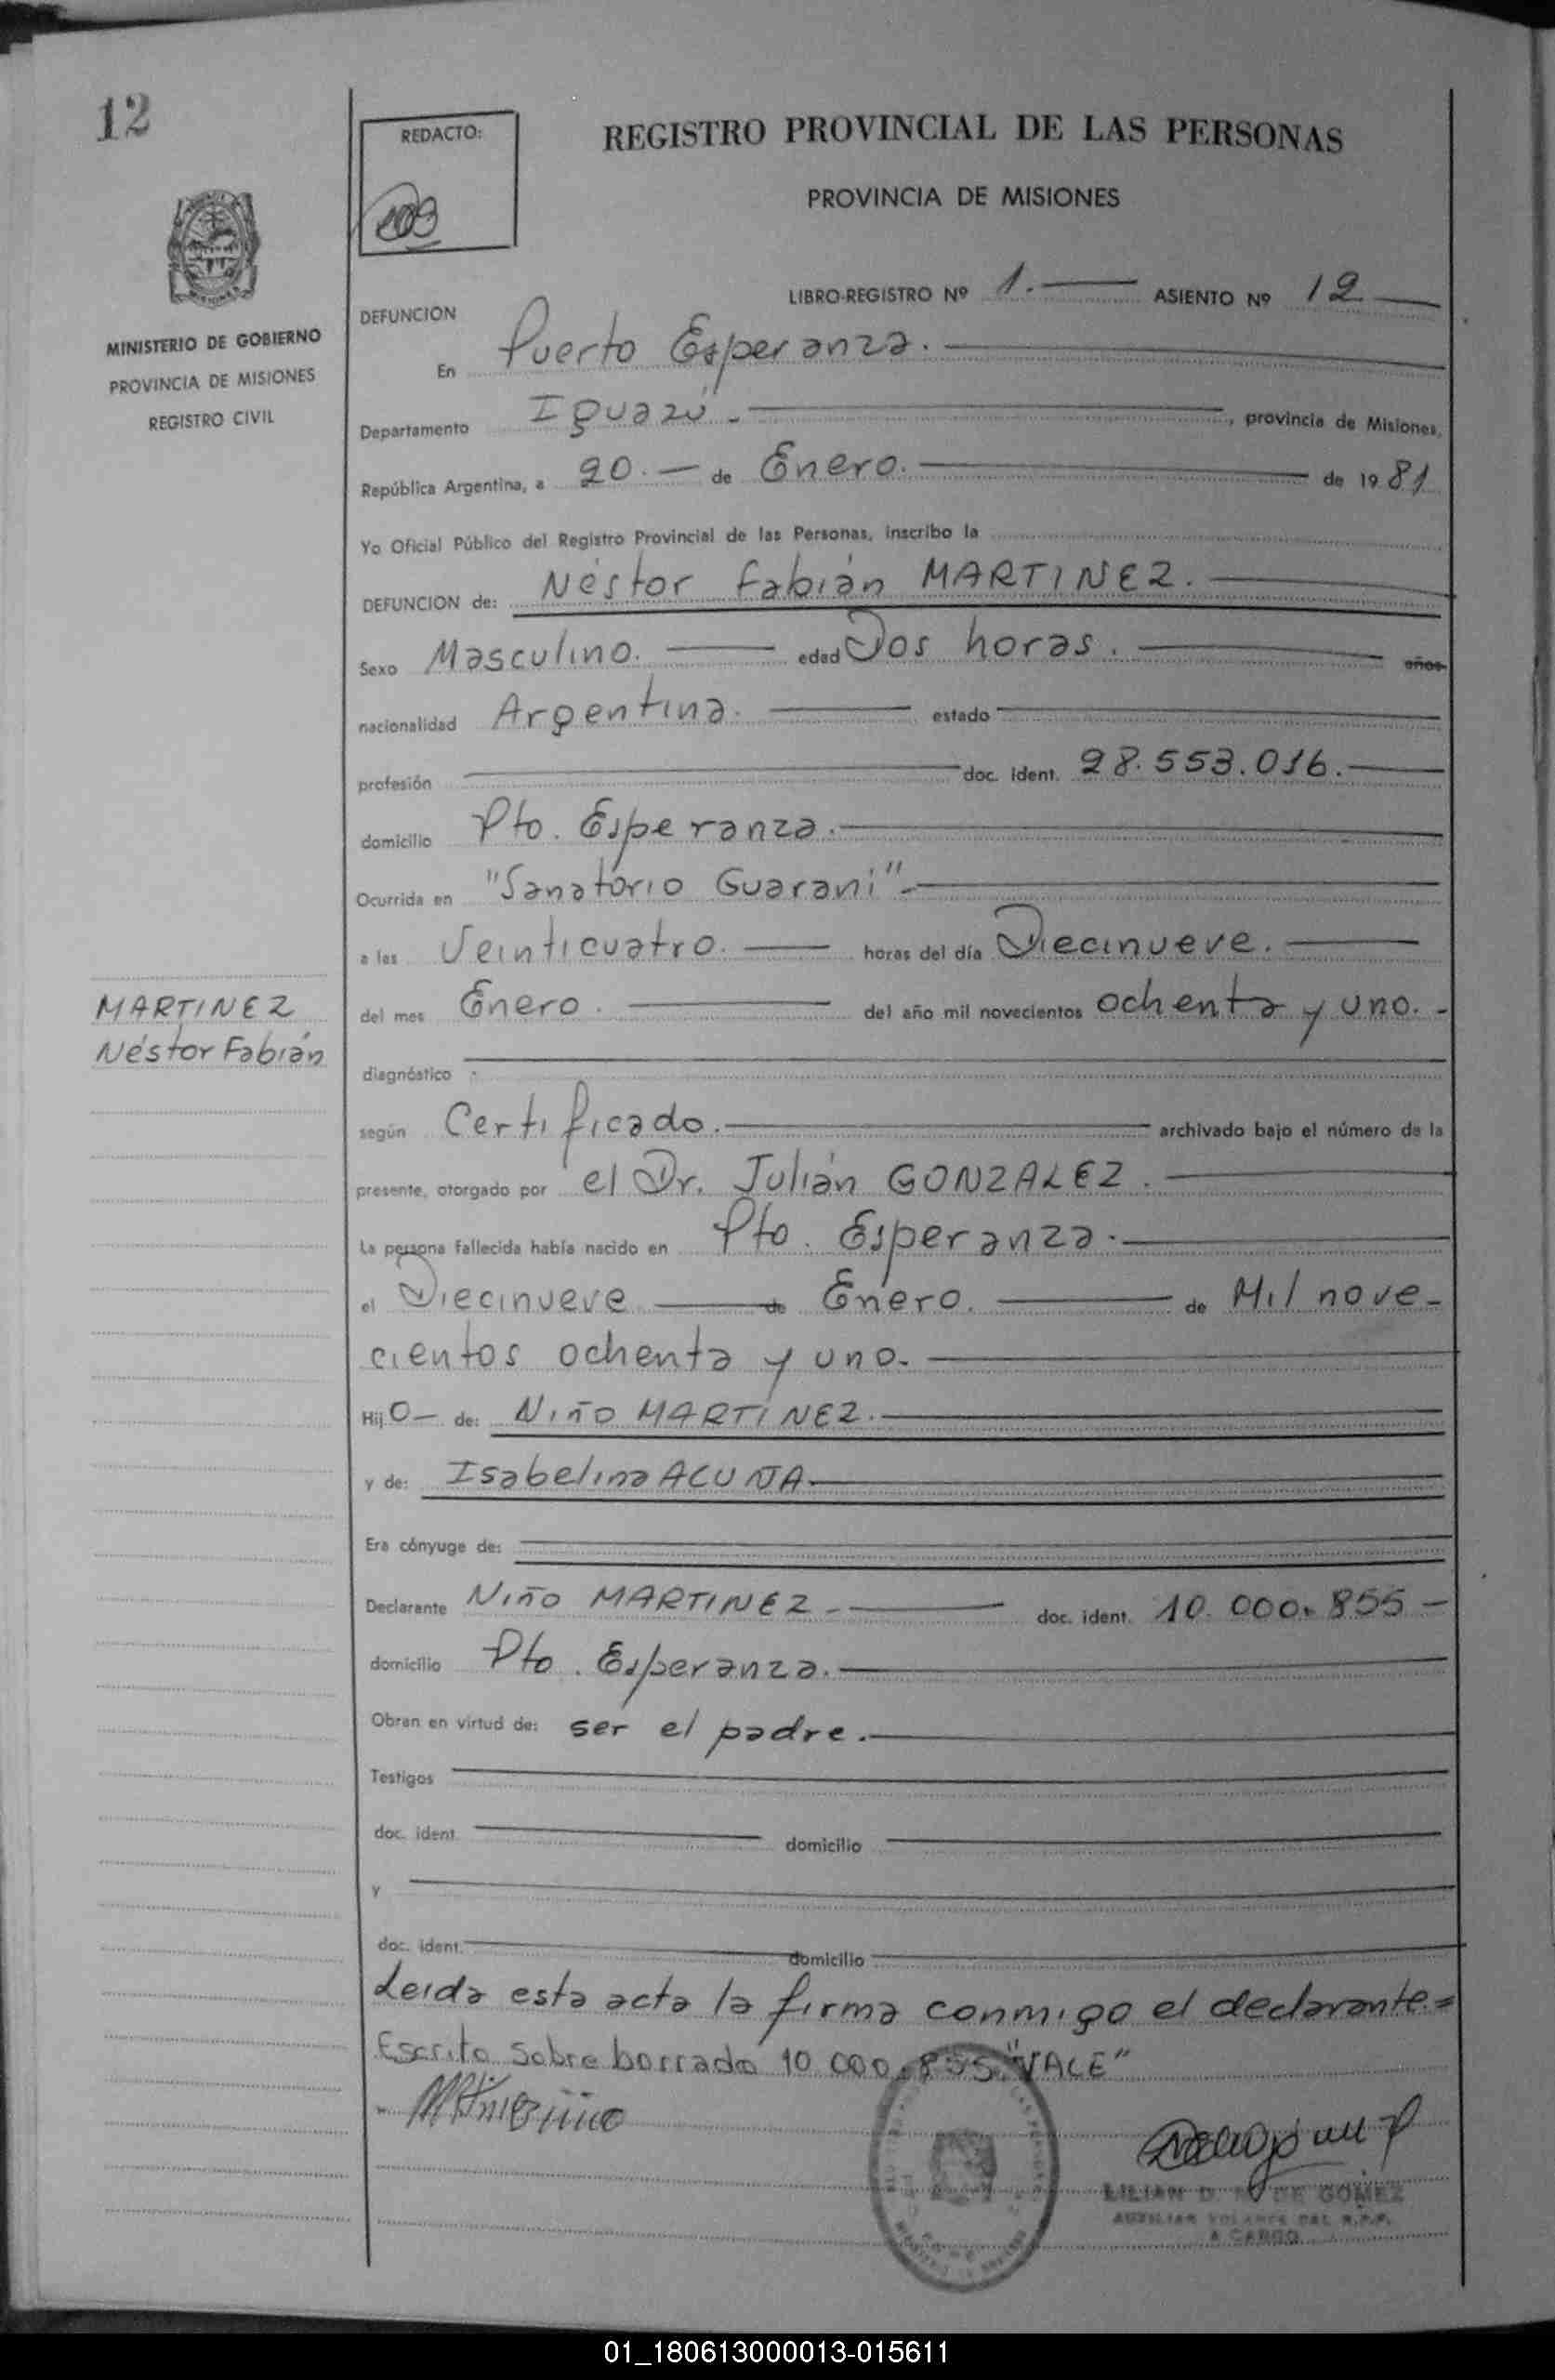 12
REDACTO:
REGISTRO PROVINCIAL DE LAS PERSONAS
PROVINCIA DE MISIONES
MINISTERIO DE GOBIERNO
PROVINCIA DE MISIONES
REGISTRO CIVIL
LIBRO-REGISTRO Nº 1.— ASIENTO Nº 12—
DEFUNCION
En Puerto Esperanza.
Departamento Iguazú.- , provincia de Misiones,
República Argentina, a 20.— de Enero. de 1981
Yo Oficial Público del Registro Provincial de las Personas, inscribo la
DEFUNCION de: Néstor Fabián MARTINEZ.
Sexo Masculino. edad Dos horas. años
nacionalidad Argentina. estado
profesión doc. ident. 28.553.016.
domicilio Pto. Esperanza.
Ocurrida en "Sanatorio Guarani".-
a las Veinticuatro. horas del día Diecinueve.
MARTINEZ
Néstor Fabián
del mes Enero. del año mil novecientos ochenta y uno.-
diagnóstico
según Certificado. archivado bajo el número de la
presente, otorgado por el Dr. Julián GONZALEZ.
La persona fallecida había nacido en Pto. Esperanza.
el Diecinueve de Enero. de Mil nove-
cientos ochenta y uno.
Hij O— de: Niño MARTINEZ.
y de: Isabelina ACUÑA.
Era cónyuge de:
Declarante Niño MARTINEZ.- doc. ident. 10.000.855 —
domicilio Pto. Esperanza.
Obran en virtud de: ser el padre.
Testigos
doc. ident. domicilio
y
doc. ident. domicilio
Leida esta acta la firma conmigo el declarante.=
Escrito sobre borrado 10.000.855 "VALE"
LILIAN D. DE GOMEZ
AUXILIAR VOLANTE DEL R.P.P.
A CARGO
01_180613000013-015611